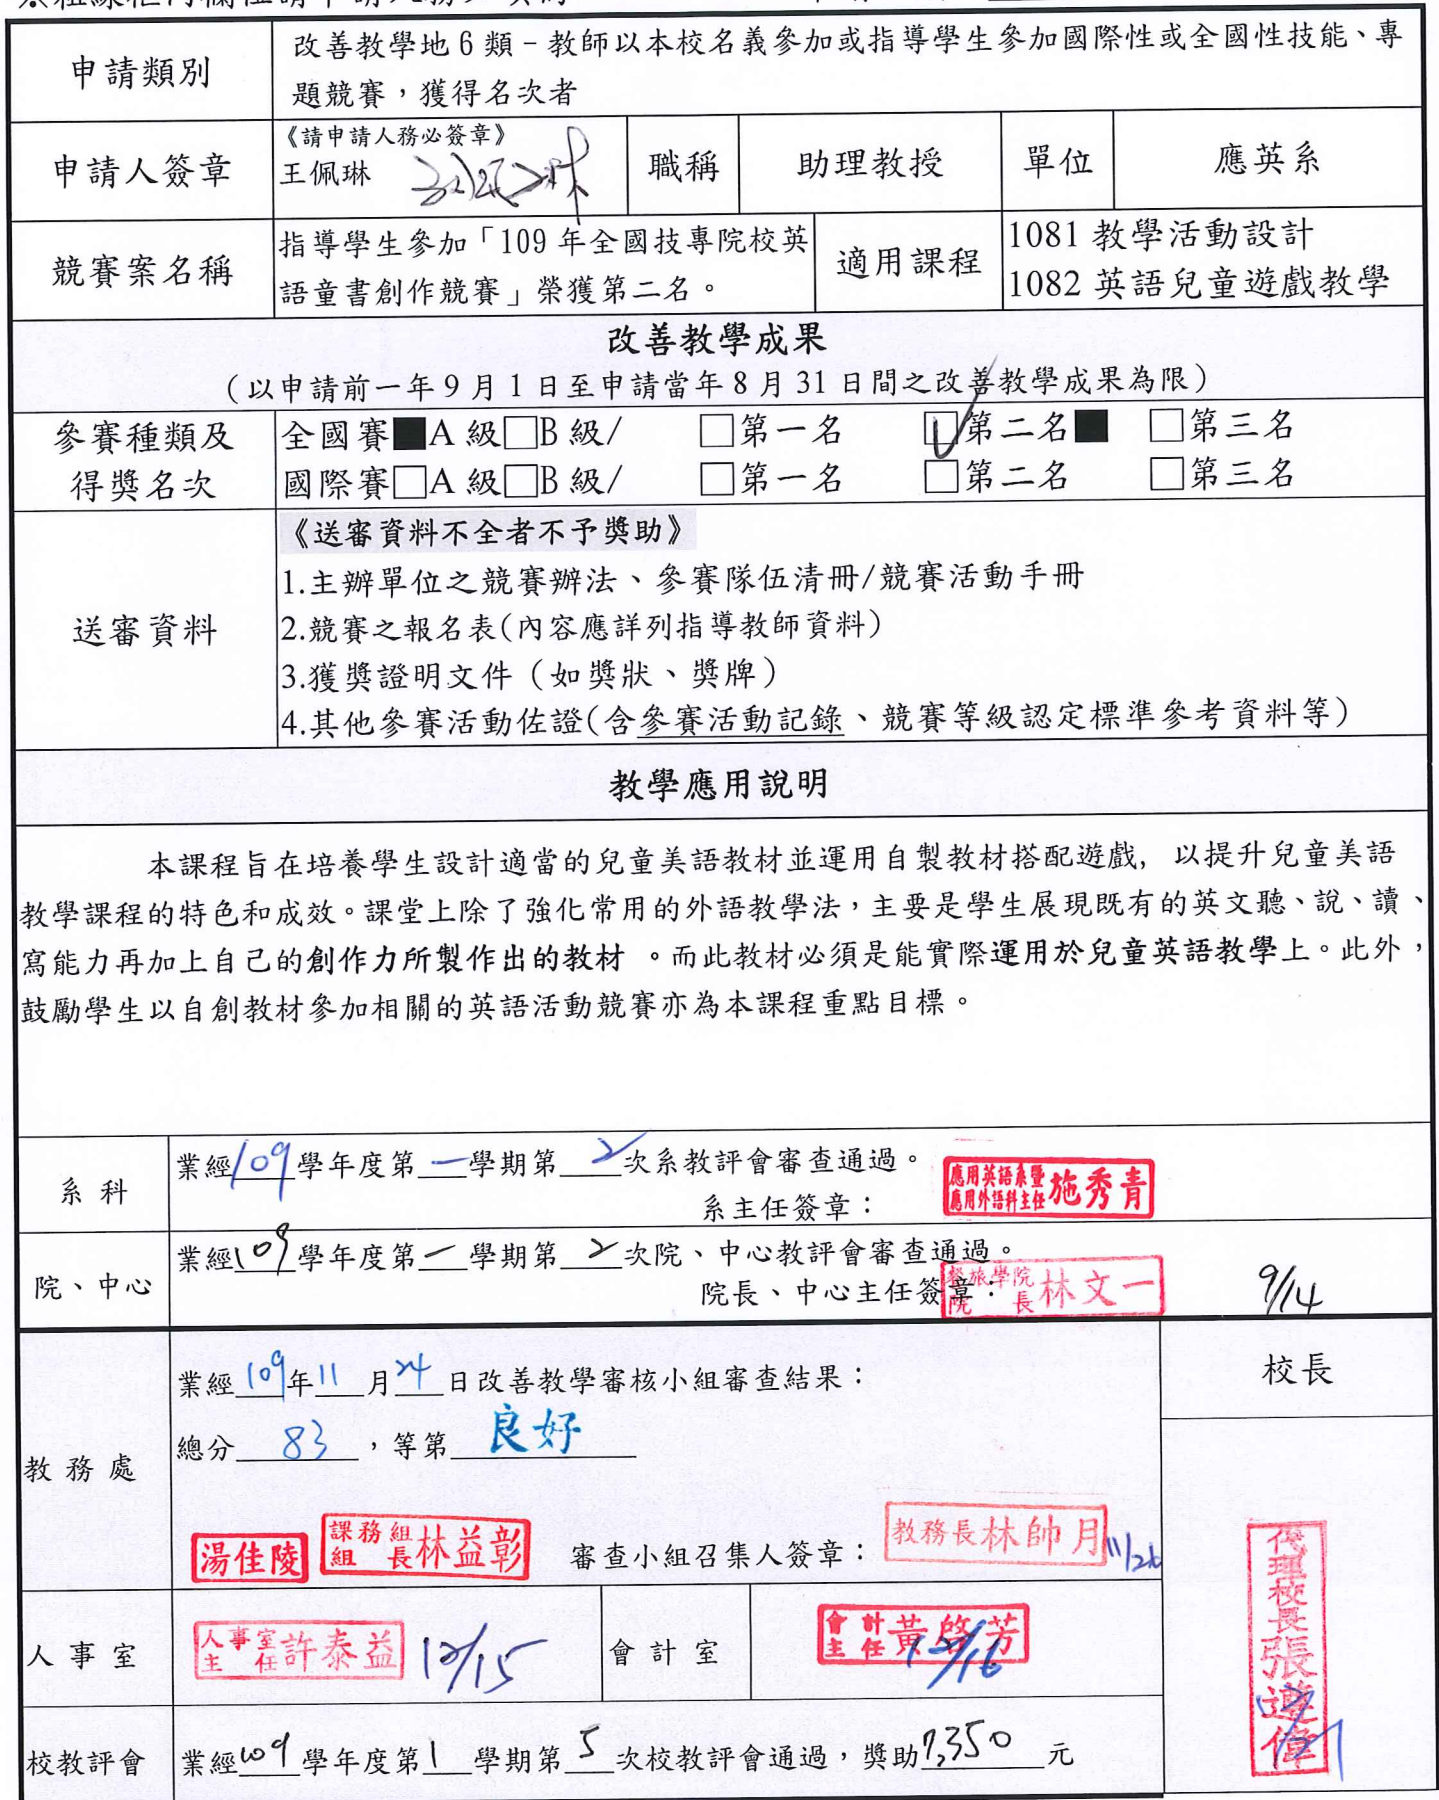 申請類別
改善教學地6類－教師以本校名義參加或指導學生參加國際性或全國性技能、專
題競賽，獲得名次者
申請人簽章
《請申請人務必簽章》
王佩琳
職稱
助理教授
單位
應英系
競賽案名稱
指導學生參加「109年全國技專院校英
語童書創作競賽」榮獲第二名。
適用課程
1081 教學活動設計
1082 英語兒童遊戲教學
改善教學成果
（以申請前一年9月1日至申請當年8月31日間之改善教學成果為限）
參賽種類及
得獎名次
全國賽■A級□B級/ □第一名 □第二名■ □第三名
國際賽□A級□B級/ □第一名 □第二名 □第三名
送審資料
《送審資料不全者不予獎助》
1.主辦單位之競賽辦法、參賽隊伍清冊/競賽活動手冊
2.競賽之報名表(內容應詳列指導教師資料)
3.獲獎證明文件（如獎狀、獎牌）
4.其他參賽活動佐證(含參賽活動記錄、競賽等級認定標準參考資料等)
教學應用說明
本課程旨在培養學生設計適當的兒童美語教材並運用自製教材搭配遊戲，以提升兒童美語
教學課程的特色和成效。課堂上除了強化常用的外語教學法，主要是學生展現既有的英文聽、說、讀、
寫能力再加上自己的創作力所製作出的教材 。而此教材必須是能實際運用於兒童英語教學上。此外，
鼓勵學生以自創教材參加相關的英語活動競賽亦為本課程重點目標。
系科
業經109學年度第一學期第2次系教評會審查通過。
系主任簽章：
應用英語系暨
應用外語科主任 施秀青
院、中心
業經109學年度第一學期第2次院、中心教評會審查通過。
院長、中心主任簽章：
餐旅學院
院長 林文一
9/14
教務處
業經109年11月24日改善教學審核小組審查結果：
總分 83 ，等第 良好
湯佳陵
課務組
組長 林益彰
審查小組召集人簽章：
教務長林帥月
11/26
校長
代理校長張遵偉
人事室
人事室
主任 許泰益
12/15
會計室
會計
主任 黃啓芳
12/16
校教評會
業經109學年度第1學期第5次校教評會通過，獎助7,350元